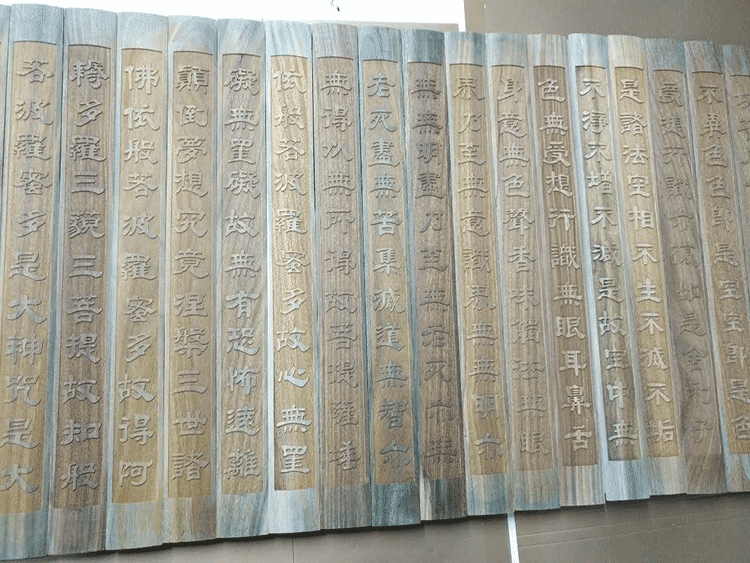 不異色色即是空空即是色
受想行識亦復如是舍利子
是諸法空相不生不滅不垢
不淨不增不減是故空中無
色無受想行識無眼耳鼻舌
身意無色聲香味觸法無眼
界乃至無意識界無無明亦
無無明盡乃至無老死亦無
老死盡無苦集滅道無智亦
無得以無所得故菩提薩埵
依般若波羅蜜多故心無罣
礙無罣礙故無有恐怖遠離
顛倒夢想究竟涅槃三世諸
佛依般若波羅蜜多故得阿
耨多羅三藐三菩提故知般
若波羅蜜多是大神咒是大